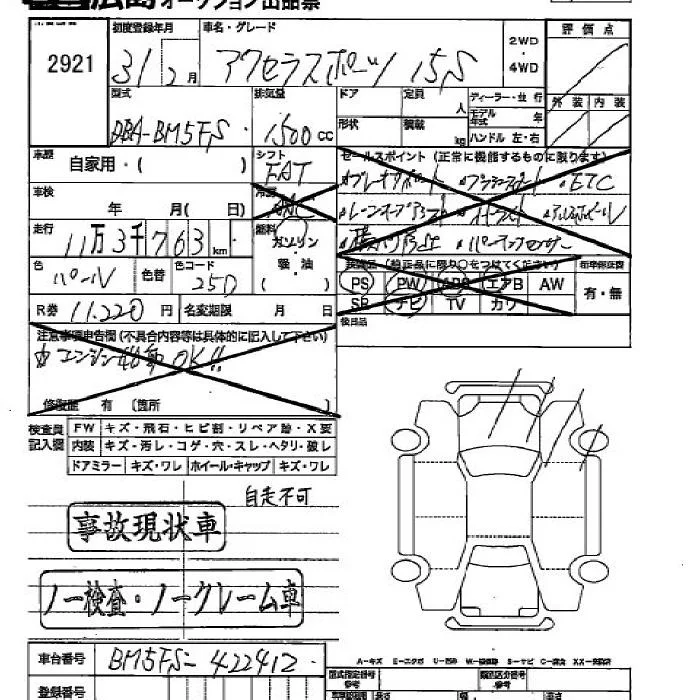 広島オークション出品票
2921
初度登録年月 車名・グレード
31 2月 アクセラスポーツ 15S
2WD
・
4WD
評価点
型式 排気量 ドア 定員 人
DBA-BM5FS 1,500cc
形状 積載 kg
ディーラー・並行
モデル年式 年
ハンドル 左・右
外装 内装
車歴 自家用・( )
シフト FAT
車検 年 月( 日)
冷房 AAC
走行 11万3千763km
燃料 ガソリン・軽油 ( )
色 パール 色替 色コード 25D
R券 11,220円 名変期限 月 日
セールスポイント(正常に機能するものに限ります)
・ETC
・パーキングセンサー
装備品(純正品に限り○をつけてください)
PS PW ABS エアB AW
SR ナビ TV カワ
有・無
検目品
注意事項申告欄(不具合内容等は具体的に記入して下さい)
エンジン始動OK!!
修復歴 有 〔箇所 〕
検査員記入欄
FW キズ・飛石・ヒビ割・リペア跡・X要
内装 キズ・汚レ・コゲ・穴・スレ・ヘタリ・破レ
ドアミラー キズ・ワレ ホイール・キャップ キズ・ワレ
自走不可
事故現状車
ノー検査・ノークレーム車
車台番号 BM5FS-422412
登録番号
A-キズ E-エクボ U-凹ミ
型式指定番号 類別区分番号